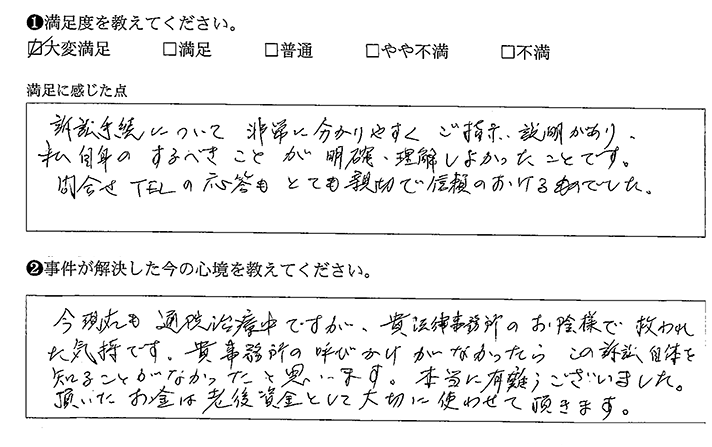 ❶満足度を教えてください。
☑大変満足 □満足 □普通 □やや不満 □不満
満足に感じた点
訴訟手続について 非常に分かりやすく ご指示、説明があり、
私自身の するべき こと が 明確、理解しよかったことです。
問合せ TELの 応答も とても親切で信頼のおけるものでした。
❷事件が解決した今の心境を教えてください。
今現在も 通院治療中ですが、貴法律事務所の お陰様で 救われ
た気持です。貴事務所の呼びかけ がなかったら この訴訟自体を
知ることがなかったと思います。本当に有難うございました。
頂いた お金は老後資金として大切に使わせて頂きます。